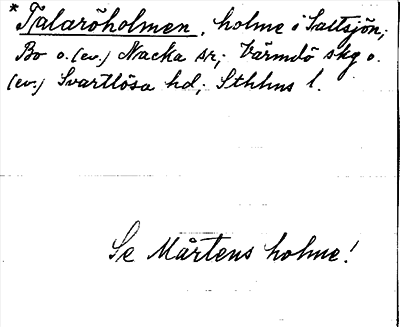 * Talaröholmen, holme i Saltsjön;
Bo o. (ev.) Nacka sr; Värmdö skg o.
(ev.) Svartlösa hd; Sthlms l.
Se Mårtens holme!